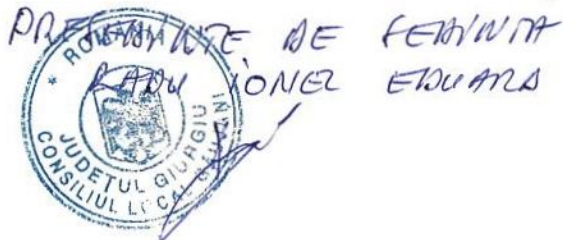 PREȘEDINTE DE ȘEDINȚĂ
RADU IONEL EDUARD
* ROMÂNIA *
JUDEȚUL GIURGIU
CONSILIUL LOCAL